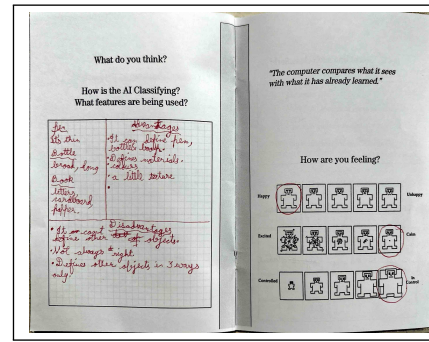 What do you think?
How is the AI Classifying?
What features are being used?
Pen
Its thin
Bottle
broad, long
Book
letters,
cardboard,
papper.
Advantages
• It can define pen,
bottles book.
• Defines materials.
• colours
• a little texture
•
Disadvantages
• It can't
define other of objects.
• Not always right.
• Defines other objects in 3 ways
only.
"The computer compares what it sees
with what it has already learned."
How are you feeling?
Happy
Unhappy
Excited
Calm
Controlled
In
Control